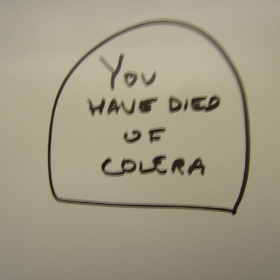 You
HAVE DIED
OF
COLERA